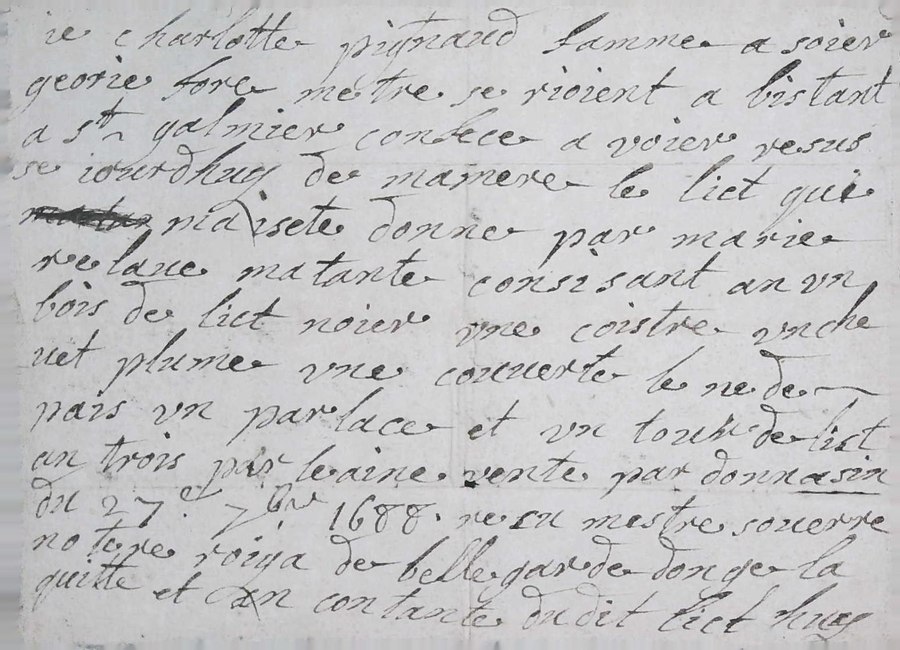 ie charlotte pignaud famme a soier
georie fore metre se rioient a bistant
a st galmier confece a voier resus
se iourdhuy de mamere le lict qui
maisete donne par marie
relaue matante consisant an vn
bois de lict noier vne coistre vnche
uet plume vne couuerte le ne de
pais vn par lace et vn tour de list
an trois par leaine vente par donnasin
du 27e 7bre 1688. resu mestre souerre
notere roiya de bellegarde donge la
quitte et an contante du dit lict huy